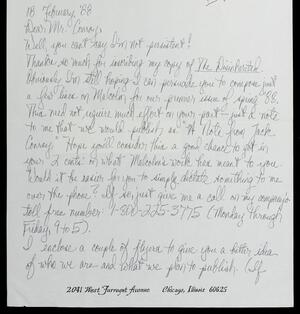 18 February '88
Dear Mr. Conroy,
Well, you can't say I'm not persistent!
Thanks so much for inscribing my copy of The Disinherited.
Obviously I'm still hoping I can persuade you to compose just
a few lines on Malcolm for our premier issue of spring '88.
This need not require much effort on your part - just a note
to me that we would publish as "A Note from Jack
Conroy." Hope you'll consider this a good chance to get in
your 2 cents on what Malcolm's work has meant to you.
Would it be easier for you to simply dictate something to me
over the phone? If so, just give me a call on my company's
toll free number: 1-800-225-3775 (Monday through
Friday, 9 to 5).
I enclose a couple of flyers to give you a better idea
of who we are and what we plan to publish. (If
2041 West Farragut Avenue Chicago, Illinois 60625